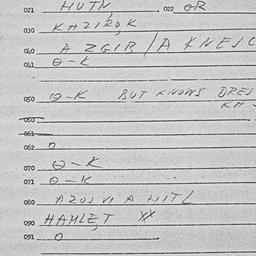 021 HUTN, 022 OR
030 KAZIROK
040 A ZGIB / A KNESC
041 O-K
050 O-K BUT KNOWS DRES
KA
060
061
062 O
070 O-K
071 O-K
080 AZOSVI A HITL
090 HAMLET XX
091 O